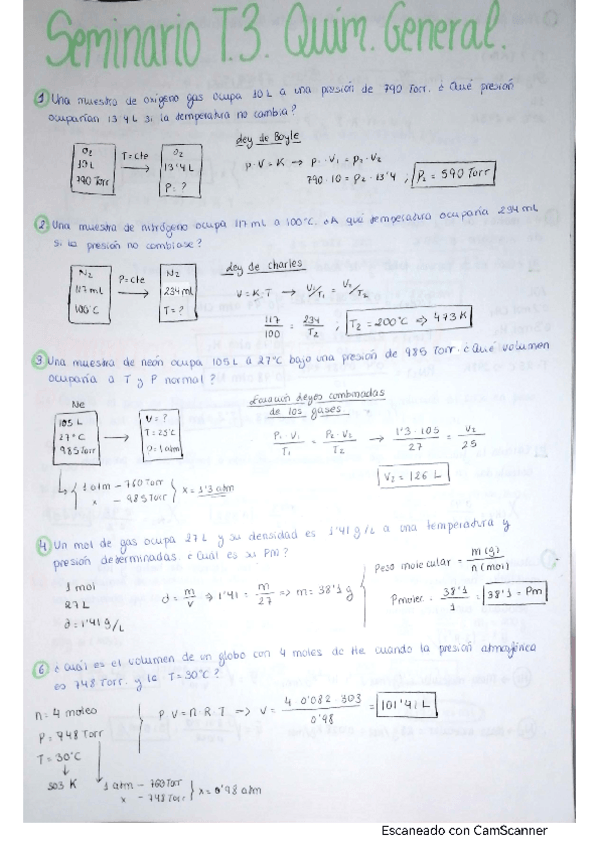 Seminario T.3. Quím. General.
1 Una muestra de oxígeno gas ocupa 10 L a una presión de 790 Torr. ¿Qué presión
ocuparían 13'4 L si la temperatura no cambia?
Ley de Boyle
O2
10 L
790 Torr
T = cte
O2
13'4 L
P: ?
P·V = K → P1·V1 = P2·V2
790·10 = P2·13'4 ; P2 = 590 Torr
2 Una muestra de nitrógeno ocupa 117 mL a 100°C. ¿A qué temperatura ocuparía 234 mL
si la presión no cambiase?
N2
117 mL
100°C
P = cte
N2
234 mL
T = ?
Ley de Charles
V = K·T → V1/T1 = V2/T2
117/100 = 234/T2 ; T2 = 200°C ⇒ 473 K
3 Una muestra de neón ocupa 105 L a 27°C bajo una presión de 985 Torr. ¿Qué volumen
ocuparía a T y P normal?
Ne
105 L
27°C
985 Torr
V = ?
T = 25°C
P = 1 atm
leyes combinadas
de los gases
P1·V1/T1 = P2·V2/T2 → 1'3·105/27 = V2/25
V2 = 126 L
1 atm – 760 Torr
x – 985 Torr
x = 1'3 atm
4 Un mol de gas ocupa 27 L y su densidad es 1'41 g/L a una temperatura y
presión determinadas. ¿Cuál es su PM?
1 mol
27 L
d = 1'41 g/L
d = m/V ⇒ 1'41 = m/27 ⇒ m = 38'1 g
Peso molecular = m(g)/n(mol)
Pmolec. = 38'1/1 = 38'1 = Pm
6 ¿Cuál es el volumen de un globo con 4 moles de He cuando la presión atmosférica
es 748 Torr. y la T = 30°C?
n = 4 moles
P = 748 Torr
T = 30°C
303 K
P·V = n·R·T ⇒ V = 4·0'082·303/0'98 = 101'41 L
1 atm – 760 Torr
x – 748 Torr
x = 0'98 atm
Escaneado con CamScanner